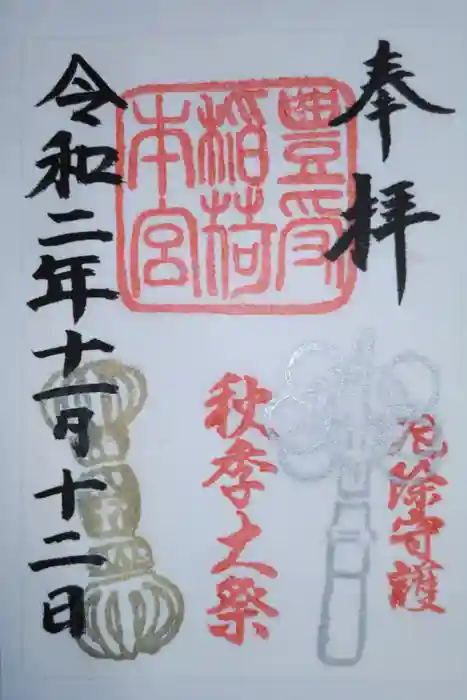 奉拝
豊受
稲荷
本宮
厄除守護
秋季大祭
令和二年十一月十二日